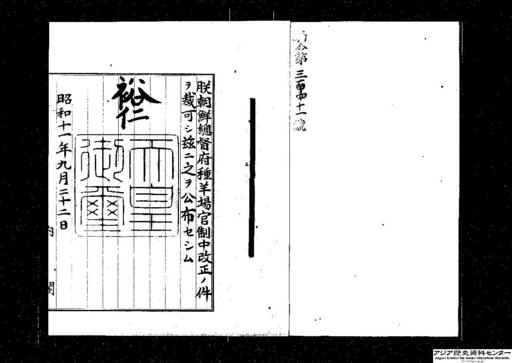 勅令第三百四十一號
朕朝鮮總督府種羊場官制中改正ノ件
ヲ裁可シ茲ニ之ヲ公布セシム
裕仁
天皇御璽
昭和十一年九月二十二日
内閣
アジア歴史資料センター
Japan Center for Asian Historical Records